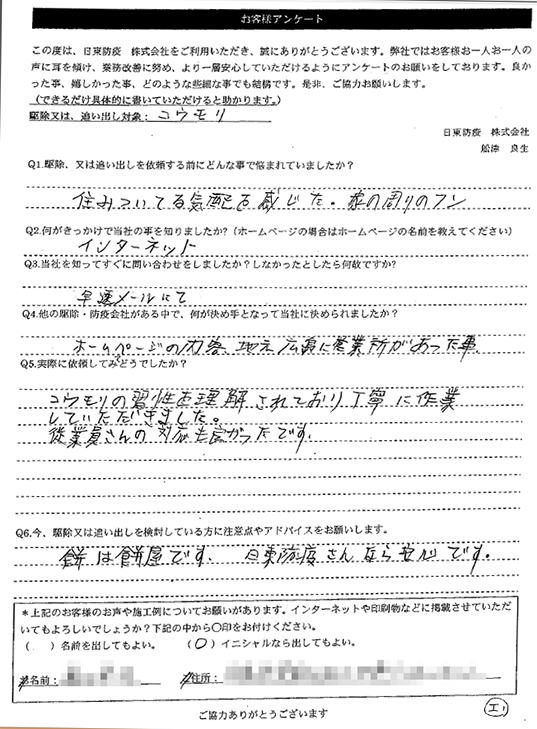 お客様アンケート
この度は、日東防疫 株式会社をご利用いただき、誠にありがとうございます。弊社ではお客様お一人お一人の
声に耳を傾け、業務改善に努め、より一層安心していただけるようにアンケートのお願いをしております。良か
った事、嬉しかった事、どのような些細な事でも結構です。是非、ご協力お願いします。
(できるだけ具体的に書いていただけると助かります。)
駆除又は、追い出し対象: コウモリ
日東防疫 株式会社
舩津 良生
Q1.駆除、又は追い出しを依頼する前にどんな事で悩まれていましたか?
住みついてる気配を感じた。家の周りのフン
Q2.何がきっかけで当社の事を知りましたか?(ホームページの場合はホームページの名前を教えてください)
インターネット
Q3.当社を知ってすぐに問い合わせをしましたか?しなかったとしたら何故ですか?
早速メールにて
Q4.他の駆除・防疫会社がある中で、何が決め手となって当社に決められましたか?
ホームページの内容、地元広島に営業所があった事
Q5.実際に依頼してみてどうでしたか?
コウモリの習性を理解されており丁寧に作業
していただきました。
従業員さんの対応も良かったです。
Q6.今、駆除又は追い出しを検討している方に注意点やアドバイスをお願いします。
餅は餅屋です、日東防疫さんなら安心です。
*上記のお客様のお声や施工例についてお願いがあります。インターネットや印刷物などに掲載させていただ
いてもよろしいでしょうか?下記の中から〇印をお付けください。
( )名前を出してもよい。 (〇)イニシャルなら出してもよい。
お名前: ご住所:
ご協力ありがとうございます